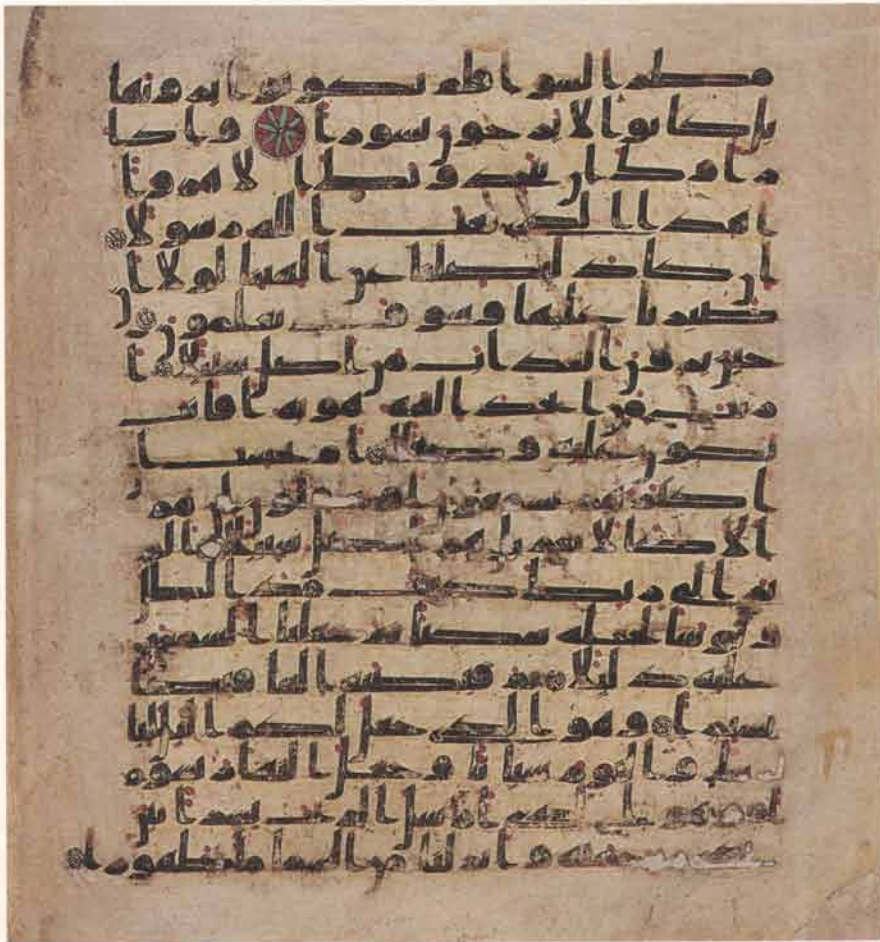 مطر السو افلم يكونوا يرونها
بل كانوا لا يرجون نشورا واذا
راوك ان يتخذونك الا هزوا
اهذا الذي بعث الله رسولا
ان كاد ليضلنا عن الهتنا لولا ان
صبرنا عليها وسوف يعلمون
حين يرون العذاب من اضل سبيلا ا
ريت من اتخذ الهه هويه افانت
تكون عليه وكيلا ام تحسب
ان اكثرهم يسمعون او يعقلون ان هم
الا كالانعم بل هم اضل سبيلا الم
تر الى ربك كيف مد الظل
ولو شا لجعله ساكنا ثم جعلنا الشمس
عليه دليلا ثم قبضنه الينا قبضا
يسيرا وهو الذي جعل لكم اليل
لباسا والنوم سباتا وجعل النهار نشورا
وهو الذي ارسل الريح بشرا بين
يدي رحمته وانزلنا من السما ما طهورا